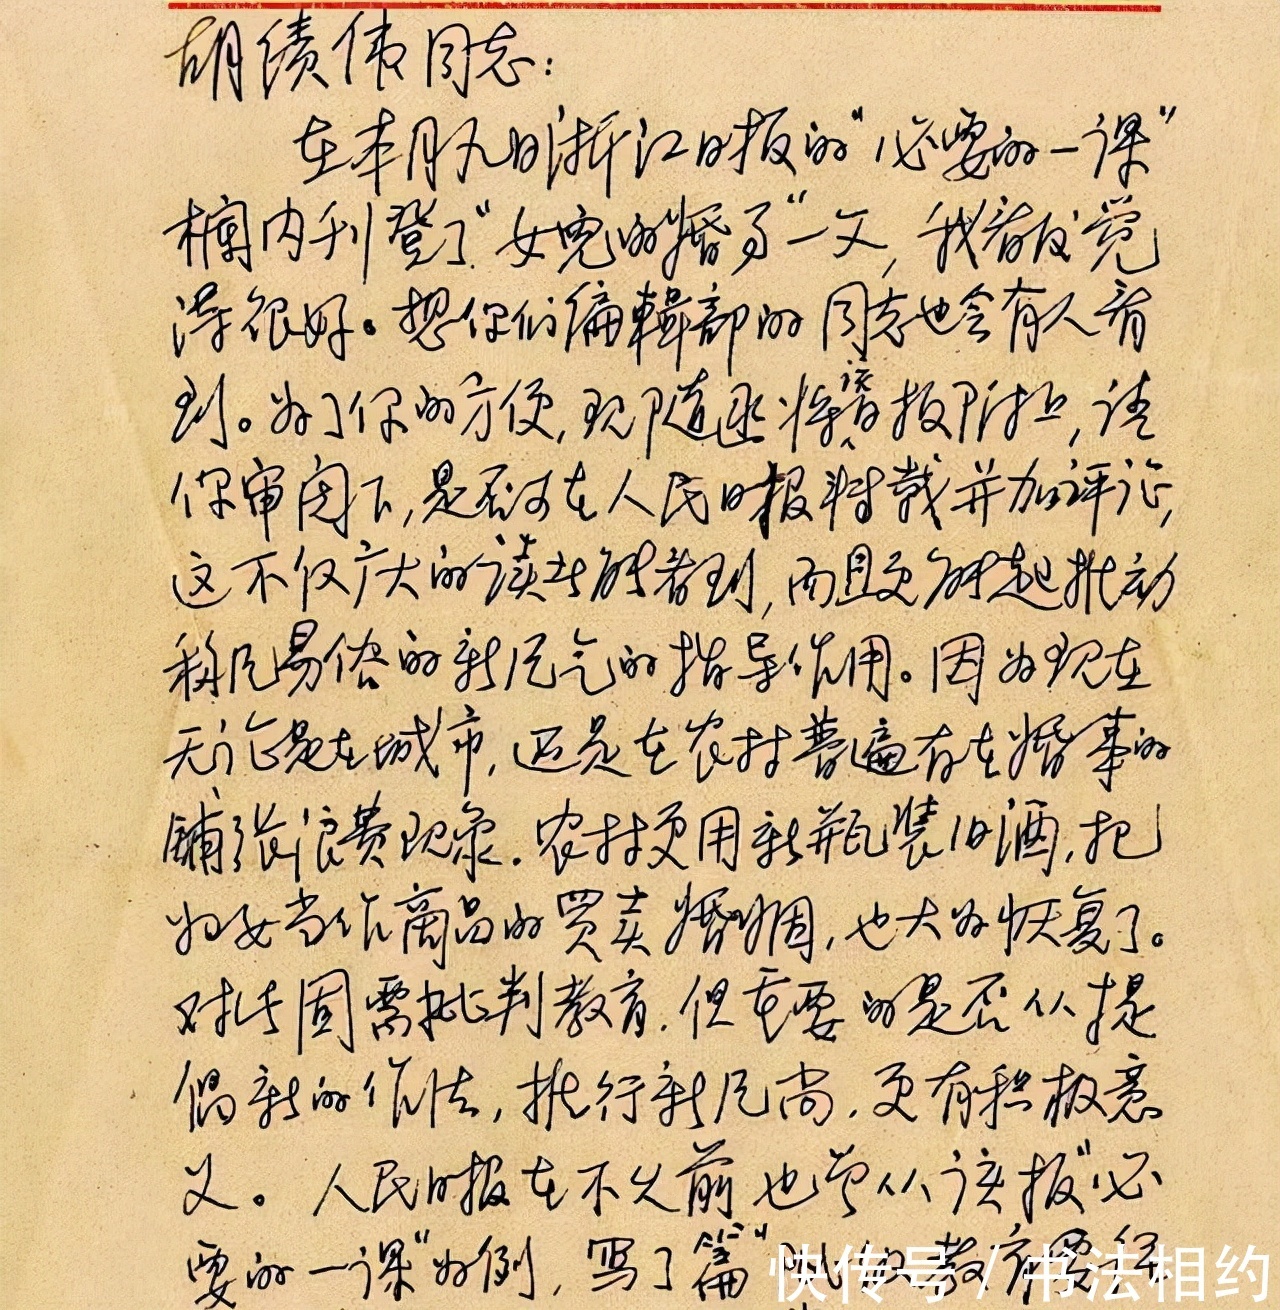 胡绩伟同志：
在本月九日浙江日报的“必要的一课”
栏内刊登了“女儿的婚事”一文，我看后觉
得很好。想你们编辑部的同志也会有人看
到。为了你的方便，现随函将该报附上，请
你审阅下，是否可在人民日报转载并加评论，
这不仅广大的读者能看到，而且更能起推动
移风易俗的新风气的指导作用。因为现在
无论是在城市，还是在农村普遍存在婚事的
铺张浪费现象。农村更用新瓶装旧酒，把
妇女当作商品的买卖婚姻，也大为恢复了。
对此固需批判教育，但重要的是否从提
倡新的作法，推行新风尚，更有积极意
义。人民日报在不久前也曾从该报“必
要的一课”为例，写了篇“教育要
快传号/书法相约